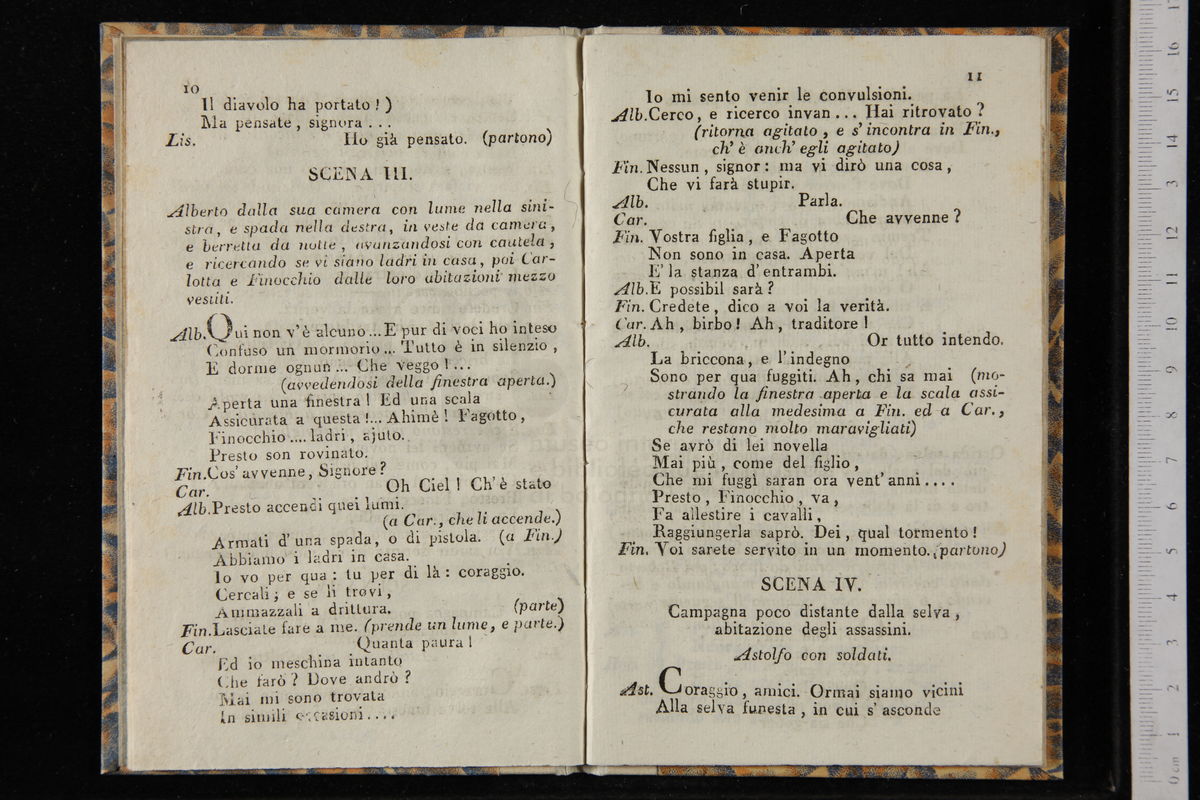 10
Il diavolo ha portato ! )
Ma pensate , signora . . .
Lis. Ho già pensato. (partono)
SCENA III.
Alberto dalla sua camera con lume nella sini-
stra, e spada nella destra, in veste da camera,
e berretta da notte , avanzandosi con cautela ,
e ricercando se vi siano ladri in casa, poi Car-
lotta e Finocchio dalle loro abitazioni mezzo
vestiti.
Alb. Qui non v'è alcuno ... E pur di voci ho inteso
Confuso un mormorio ... Tutto è in silenzio ,
E dorme ognun ... Che veggo ! ...
(avvedendosi della finestra aperta.)
Aperta una finestra ! Ed una scala
Assicurata a questa !... Ahimè ! Fagotto ,
Finocchio .... ladri , ajuto.
Presto son rovinato.
Fin. Cos' avvenne , Signore ?
Car. Oh Ciel ! Ch'è stato
Alb. Presto accendi quei lumi.
(a Car., che li accende.)
Armati d'una spada, o di pistola. (a Fin.)
Abbiamo i ladri in casa.
Io vo per qua : tu per di là : coraggio.
Cercali ; e se li trovi ,
Ammazzali a drittura. (parte)
Fin. Lasciate fare a me. (prende un lume, e parte.)
Car. Quanta paura !
Ed io meschina intanto
Che farò ? Dove andrò ?
Mai mi sono trovata
In simili occasioni . . . .
11
Io mi sento venir le convulsioni.
Alb. Cerco, e ricerco invan . . . Hai ritrovato ?
(ritorna agitato , e s' incontra in Fin.,
ch' è anch' egli agitato)
Fin. Nessun , signor : ma vi dirò una cosa ,
Che vi farà stupir.
Alb. Parla.
Car. Che avvenne ?
Fin. Vostra figlia , e Fagotto
Non sono in casa. Aperta
E' la stanza d' entrambi.
Alb. E possibil sarà ?
Fin. Credete , dico a voi la verità.
Car. Ah , birbo ! Ah , traditore !
Alb. Or tutto intendo.
La briccona , e l' indegno
Sono per qua fuggiti. Ah, chi sa mai (mo-
strando la finestra aperta e la scala assi-
curata alla medesima a Fin. ed a Car.,
che restano molto maravigliati)
Se avrò di lei novella
Mai più , come del figlio ,
Che mi fuggì saran ora vent' anni . . . .
Presto , Finocchio , va ,
Fa allestire i cavalli ,
Raggiungerla saprò. Dei , qual tormento !
Fin. Voi sarete servito in un momento. (partono)
SCENA IV.
Campagna poco distante dalla selva ,
abitazione degli assassini.
Astolfo con soldati.
Ast. Coraggio , amici. Ormai siamo vicini
Alla selva funesta , in cui s' asconde